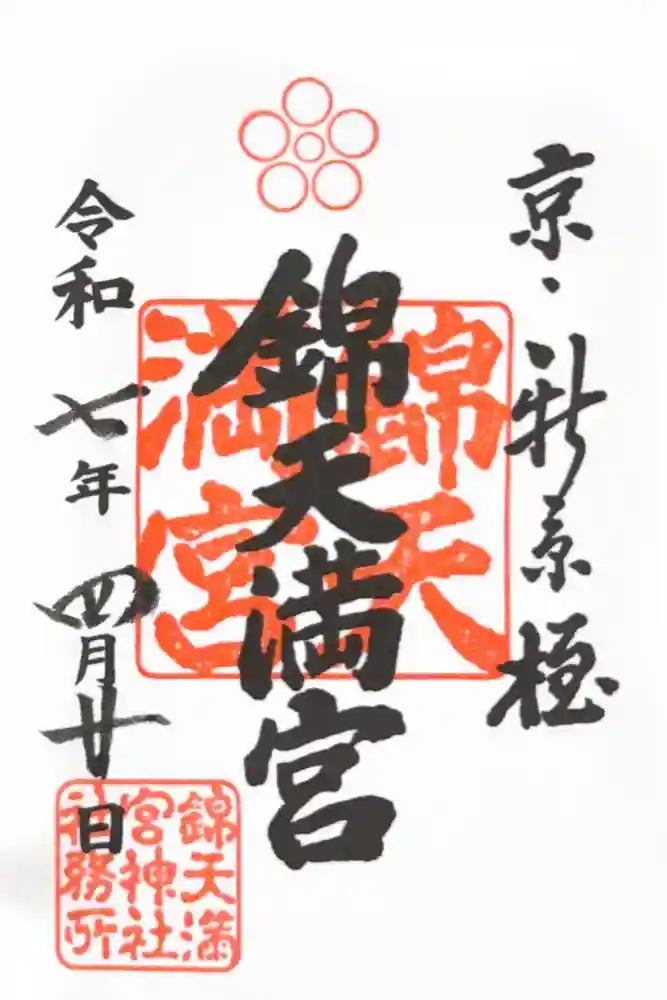 京・新京極
錦天満宮
錦天
満宮
令和七年四月廿日
錦天満
宮神社
社務所